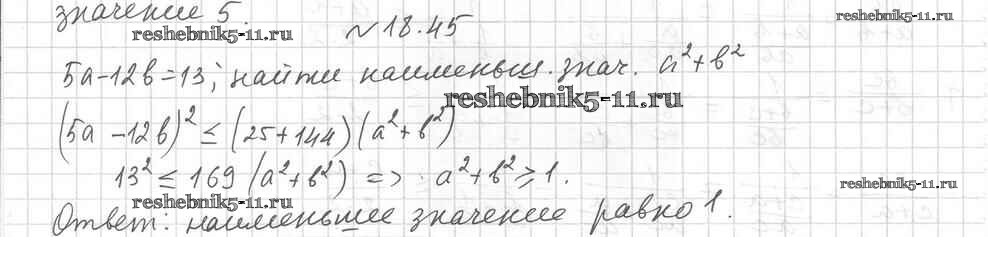 значение 5.
reshebnik5-11.ru
reshebnik5-11.ru
№18.45
5a-12b=13; найти наименьш. знач. a²+b²
reshebnik5-11.ru
(5a -12b)² ≤ (25+144)(a²+b²)
13² ≤ 169 (a²+b²) => a²+b² ≥ 1.
reshebnik5-11.ru
reshebnik5-11.ru
Ответ: наименьшее значение равно 1.